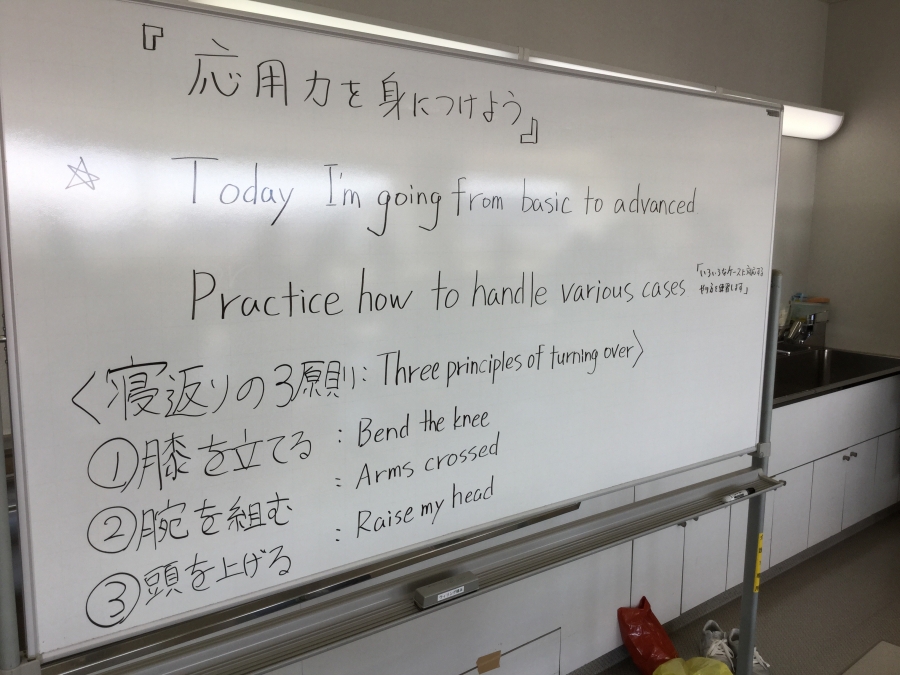 『応用力を身につけよう』
☆ Today I'm going from basic to advanced
Practice how to handle various cases 「いろいろなケースに対応する
やり方を練習します」
〈寝返りの3原則: Three principles of turning over〉
①膝を立てる : Bend the knee
②腕を組む : Arms crossed
③頭を上げる : Raise my head